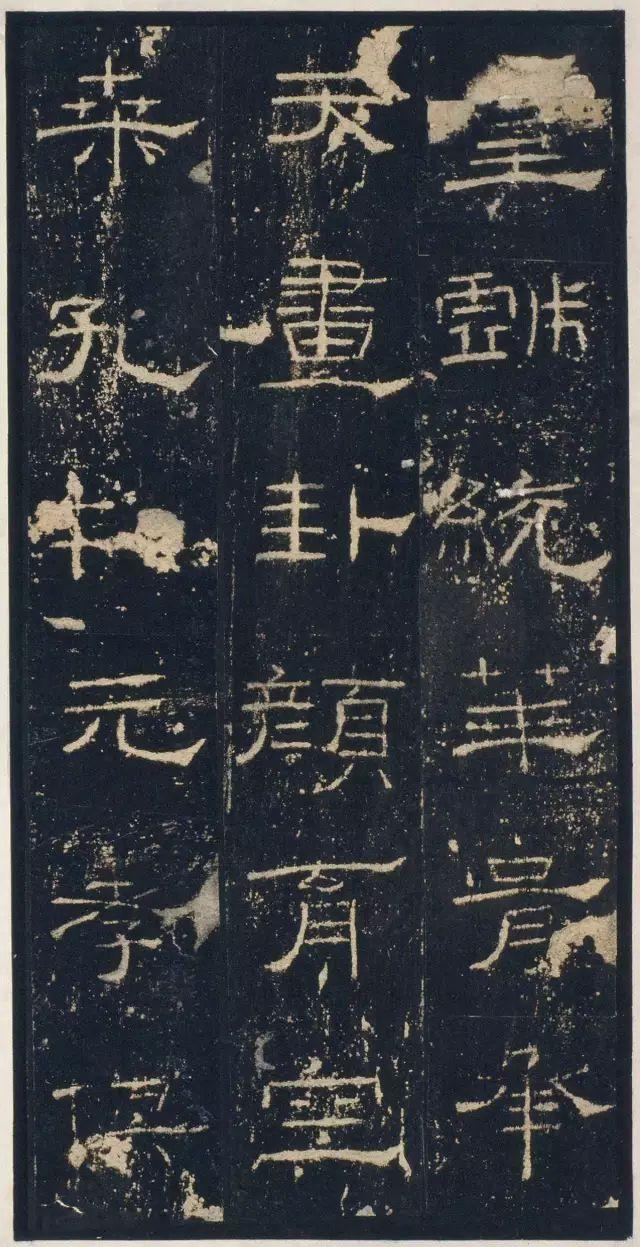 皇戲統華胥承
天畫卦顏育空
桒孔制元孝俱